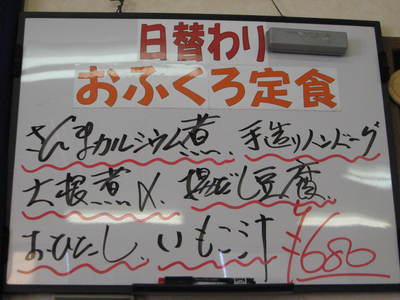 日替わり
おふくろ定食
さんまカルシウム煮、手造りハンバーグ
大根煮〆、揚だし豆腐
おひたし、いもこ汁 ¥680